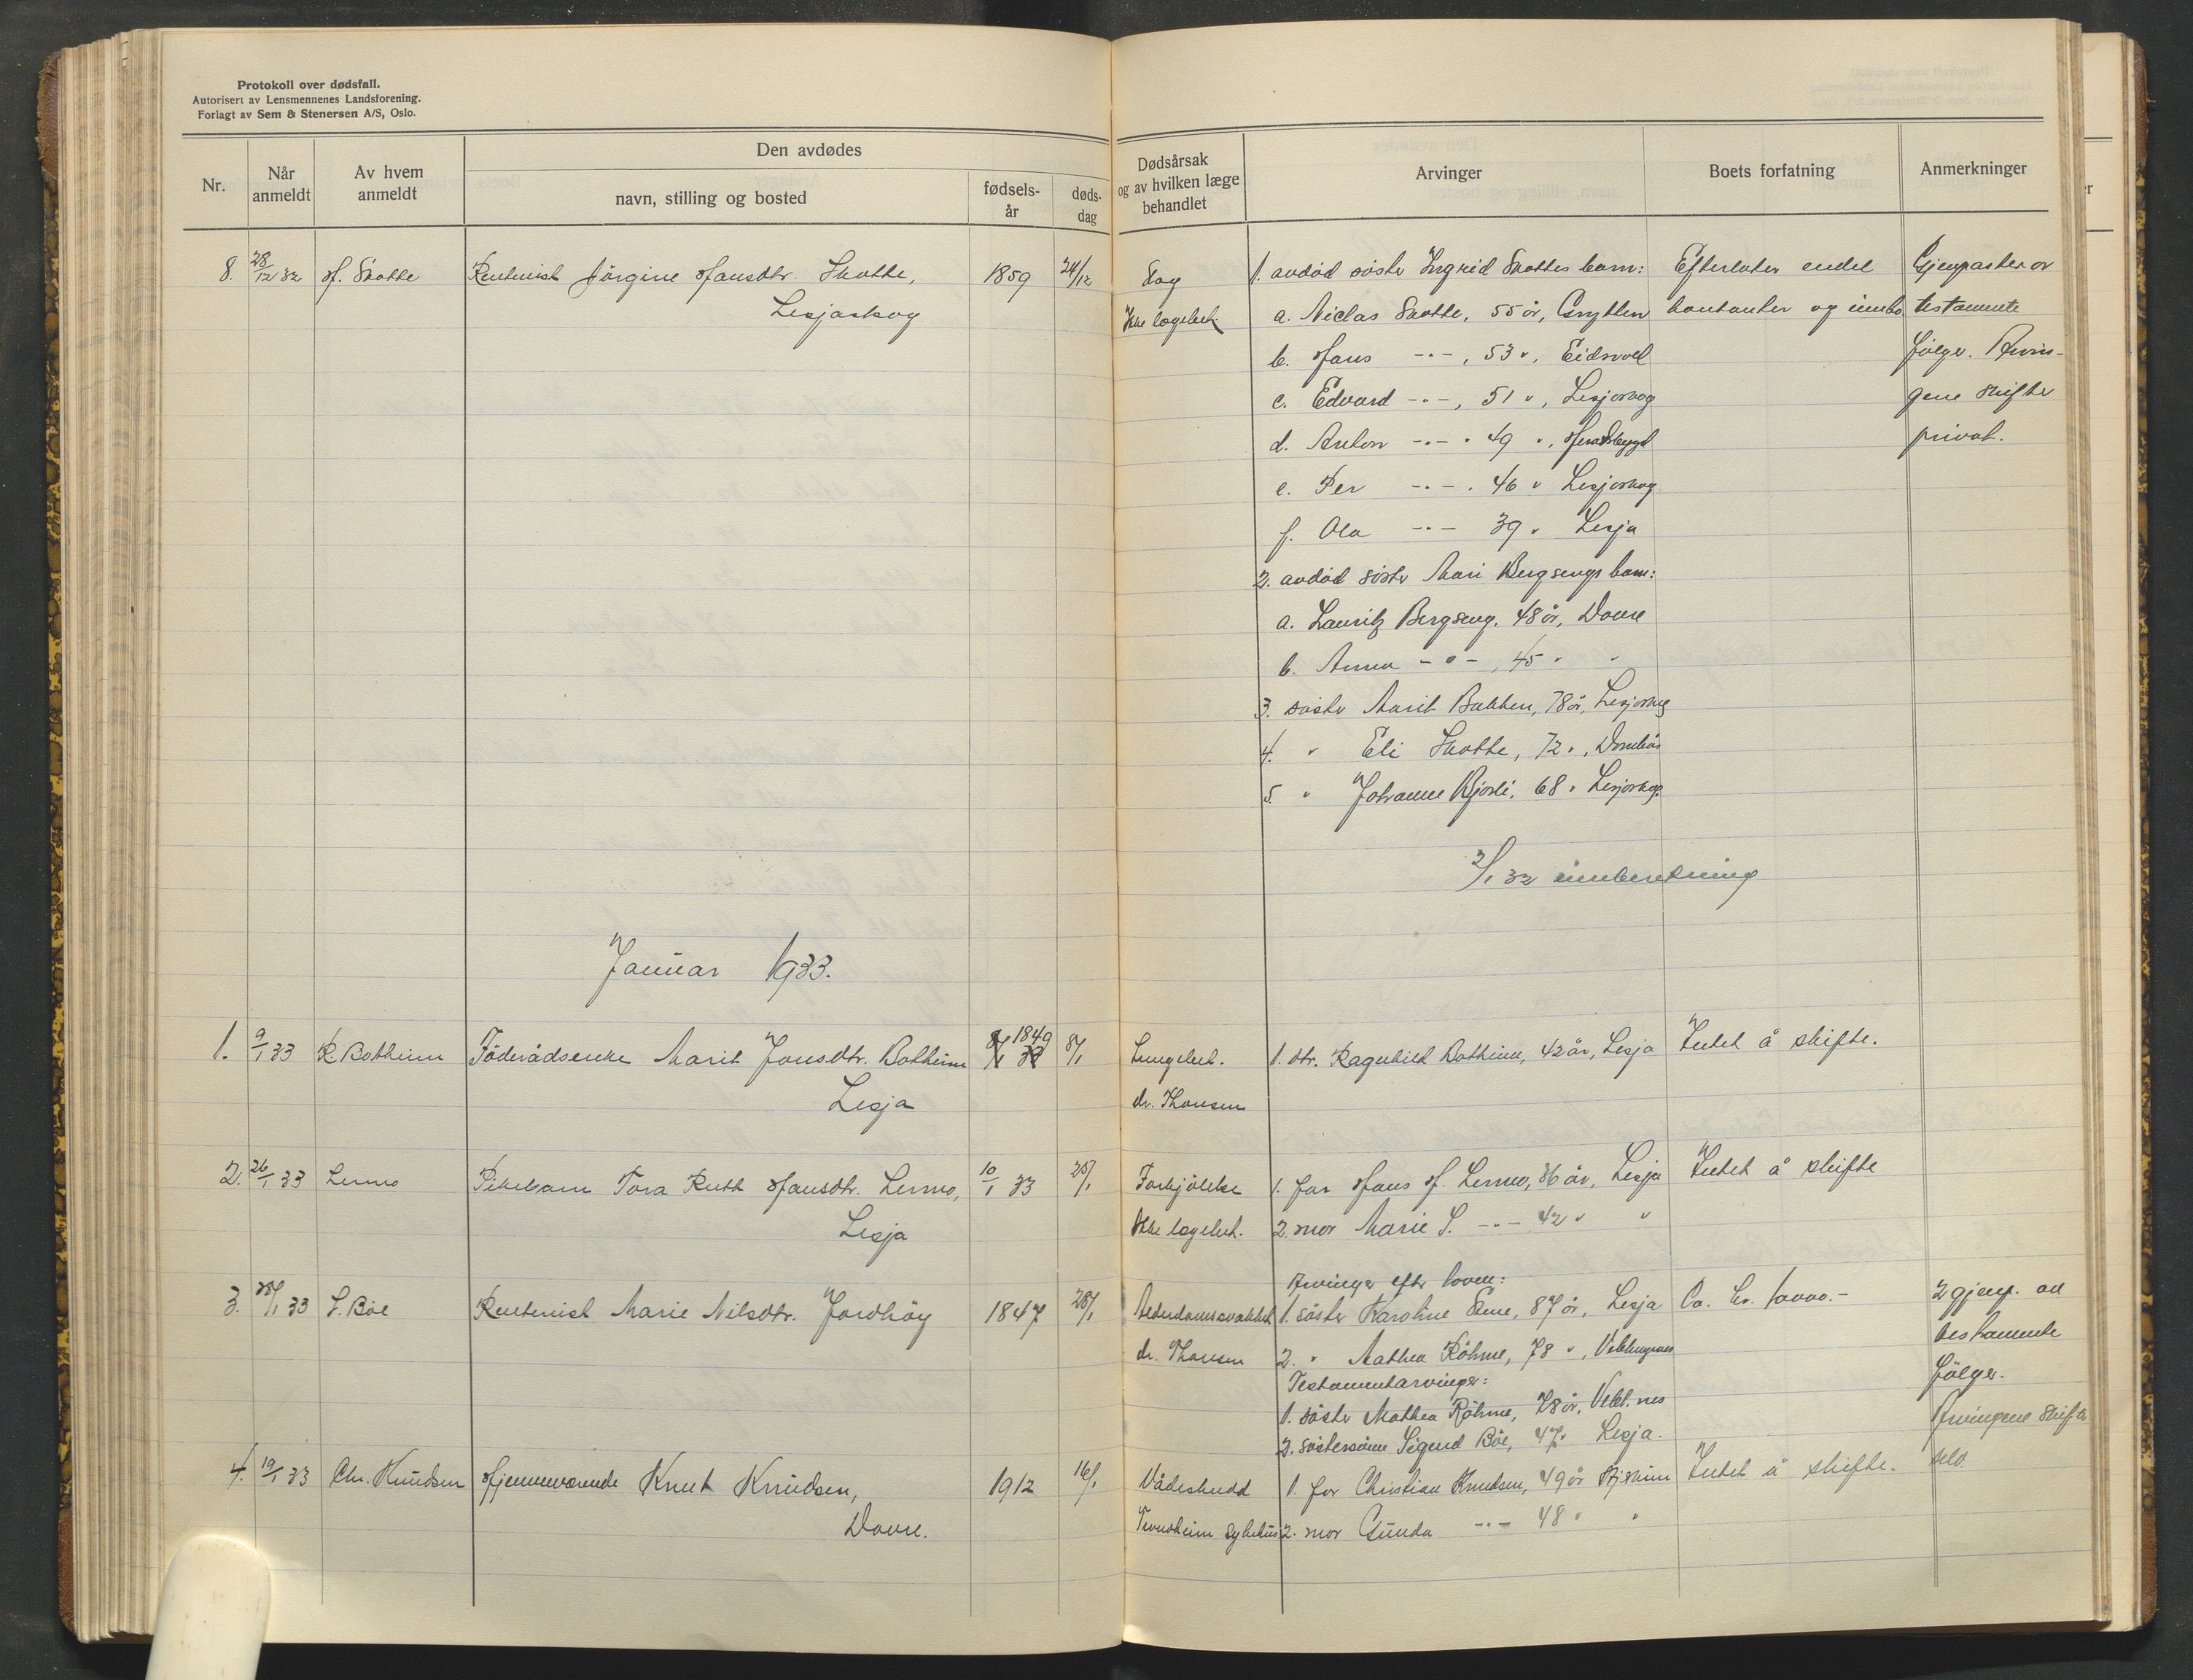 Protokoll over dødsfall.
Autorisert av Lensmennenes Landsforening.
Forlagt av Sem & Stenersen A/S, Oslo.
Nr.
Når anmeldt
Av hvem anmeldt
Den avdødes
navn, stilling og bosted
fødsels-år
døds-dag
Dødsårsak og av hvilken læge behandlet
Arvinger
Boets forfatning
Anmerkninger
8. 28/12 32 H. Skotte Rentenist Jörgine Hansdtr. Skotte, 1859 24/12
Lesjaskog
Ikke lægebeh.
1. avdöd söster Ingrid Skottes barn: Efterlater endel Gjenpart av
a. Niclas Skotte, 55 år, Grytten kontanter og innbo testamente
b. Hans -"-, 53 ", Eidsvoll følger. Arvin-
c. Edvard -"-, 51 ", Lesjaskog gene skifter
d. Anton -"- " 49 ", privat.
e. Per -"- . 46 " Lesjaskog
f. Ola -"- 39 " Lesja
2. avdöd söster Mari Bergsengs barn:
a. Lauritz Bergseng, 48 år, Dovre
b. Anna -"-, 45 " "
3. söster Marit Bakken, 78 år, Lesjaskog
4. " Eli Skotte, 72 ", Dombås
5. " Johanne Bjorli, 68 " Lesjaskog
3/1 32 innberetning
Januar 1933.
1. 9/1 33 R Bottheim Föderådsenke Marit Jonsdtr. Bottheim 1849 8/1
Lesja
Lungebet.
dr. Thonsen
1. dtr. Ragnhild Bottheim, 42 år, Lesja Intet å skifte.
2. 26/1 33 Lermo Pikebarn Tora Ruth Hansdtr. Lermo, 10/1 33 25/1
Lesja
Forkjölelse
Ikke lægebeh.
1. far Hans H. Lermo, 36 år, Lesja Intet å skifte
2. mor Marie S. -"- 42 " "
3. 28/1 33 S. Böe Rentenist Marie Nilsdtr. Jordhöy 1847 28/1
Alderdomssvakhet
dr. Thonsen
Arvinger efter loven:
1. söster Karoline Enne, 87 år, Lesja Ca. kr. 10000.- 2 gjenp. av
2. " Mathea Röhme, 78 ", Veblungsnes testamente
Testamentarvinger: følger.
1. söster Mathea Röhme, 78 år, Vebl.nes Arvingene skifter
2. söstersönn Sigurd Böe, 47 " Lesja. selv.
4. 19/1 33 Chr. Knudsen Hjemmeværende Knut Knudsen, 1912 16/1
Dovre.
Vådeskudd
Trondheim sykehus
1. far Christian Knudsen, 49 år Intet å skifte.
2. mor Gunda -"- 48 " "